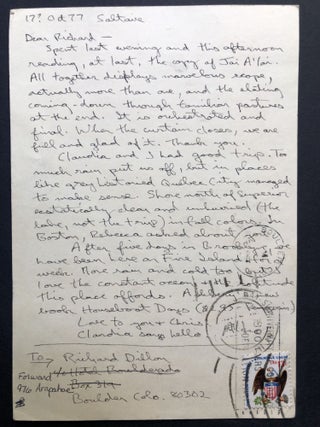 17? Oct 77 Saltaire
Dear Richard —
Spent last evening and this afternoon
reading, at last, the copy of Jai A'lai.
All together displays marvelous scope,
actually more than one, and the
coming-down through familiar pastures
at the end. It is orchestrated and
final. When the curtain closes, we are
full and glad of it. Thank you.
Claudia and I had good trip. Too
much rain put us off, but in places
like grey Quebec City managed
to make sense. Shore north of Superior
ecstatically clear and unhurried (the
lake, not the trip) in full colour. In
Boston, Rebecca asked about
After five days in Brooklyn we
have been here on Fire Island
week. More rain and cold too, but I
love the constant ocean & the
this place affords. new
book, Houseboat Days
Love to you & Chris.
Claudia says hello.
To Richard Dillon
Forward c/o Hotel Boulderado
976 Arapahoe Box 319
Boulder Colo. 80302